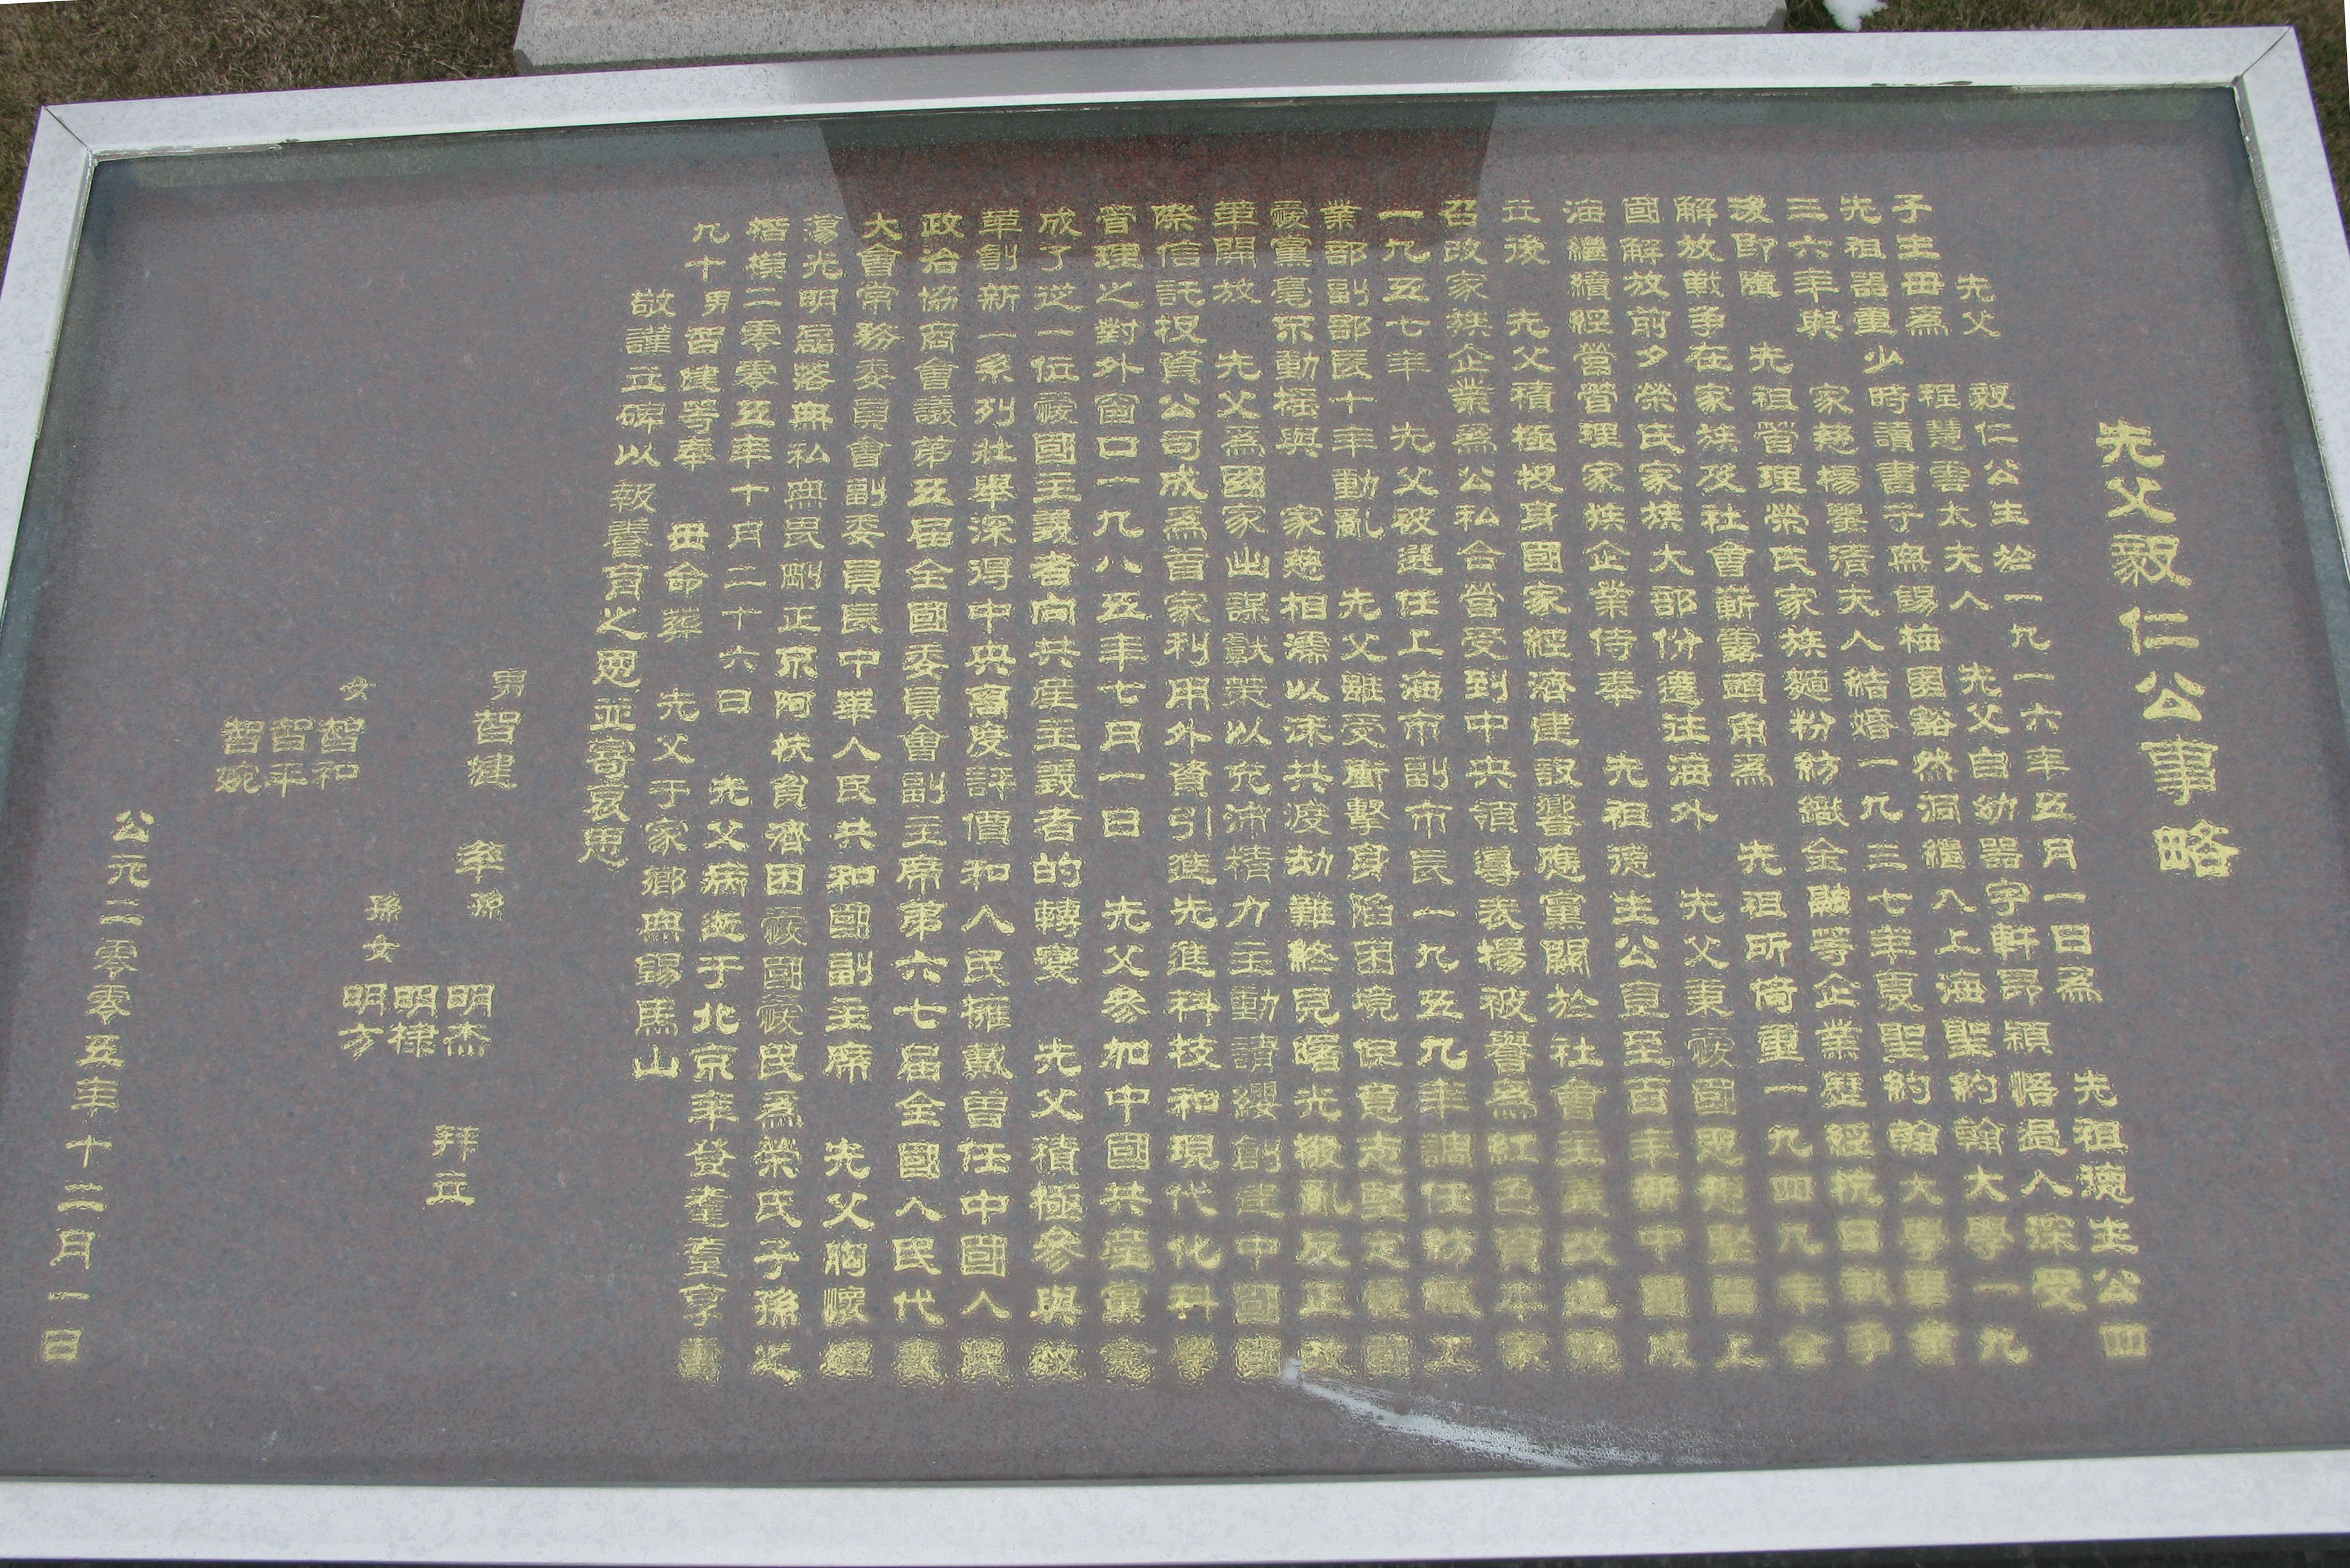 先父毅仁公事略
先父 毅仁公生於一九一六年五月一日為 先祖德生公四
子生母為 程慧雲太夫人 先父自幼器宇軒昂穎悟過人深受
先祖器重少時讀書于無錫梅園豁然洞繼入上海聖約翰大學一九
三六年與 家慈楊鑒清夫人結婚一九三七年夏聖約翰大學畢業
後即隨 先祖管理榮氏家族麵粉紡織金融等企業歷經抗日戰爭
解放戰爭在家族及社會嶄露頭角為 先祖所倚重一九四九年全
國解放前夕榮氏家族大部份遷往海外 先父秉愛國思想堅留上
海繼續經營管理家族企業侍奉 先祖德生公直至百年新中國成
立後 先父積極投身國家經濟建設響應黨關於社會主義改造號
召改家族企業為公私合營受到中央領導表揚被譽為紅色資本家
一九五七年 先父被選任上海市副市長一九五九年調任紡織工
業部副部長十年動亂 先父雖受衝擊身陷困境但意志堅定愛國
愛黨毫不動搖與 家慈相濡以沫共渡劫難終見曙光撥亂反正改
革開放 先父為國家出謀獻策以充沛精力主動請纓創建中國國
際信託投資公司成為首家利用外資引進先進科技和現代化科學
管理之對外窗口一九八五年七月一日 先父參加中國共產黨完
成了從一位愛國主義者向共產主義者的轉變 先父積極參與改
革創新一系列壯舉深得中央高度評價和人民擁戴曾任中國人民
政治協商會議第五屆全國委員會副主席第六七屆全國人民代表
大會常務委員會副委員長中華人民共和國副主席 先父胸懷坦
蕩光明磊落無私無畏剛正不阿扶貧濟困愛國愛民為榮氏子孫之
楷模二零零五年十月二十六日 先父病逝于北京華登耄耋享壽
九十男智健等奉 母命葬 先父于家鄉無錫馬山
敬謹立碑以報養育之恩並寄哀思
男智健 率孫 明杰 拜立
明棣
孫女 明方
女 智和
智平
智婉
公元二零零五年十二月一日